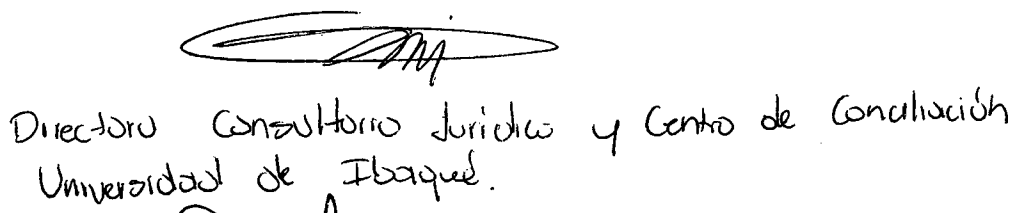 Directora Consultorio Jurídico y Centro de Conciliación
Universidad de Ibagué.